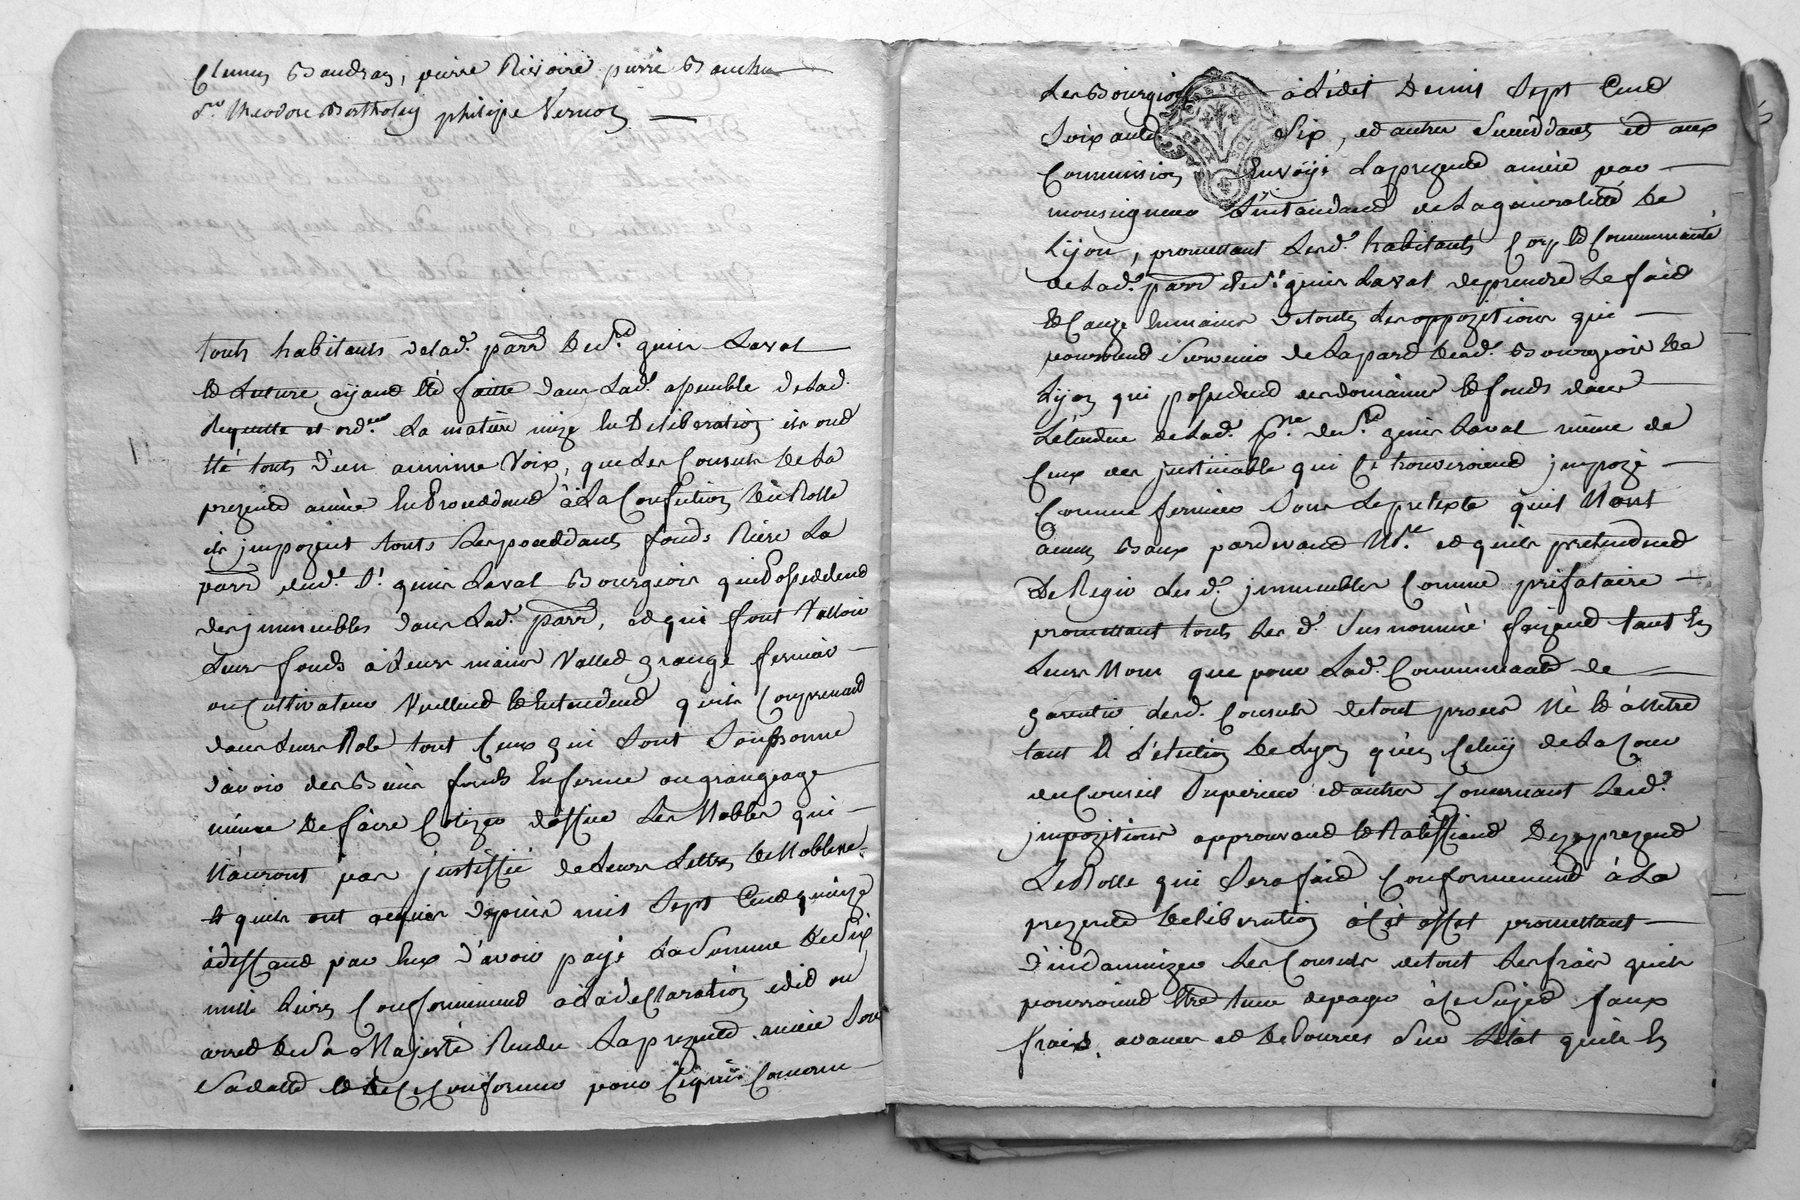 Clemen Baudran, pierre Rivoire pierre Bouchu
Sr. theodore Bertholey philipe Vernon
touts habitants de lad. parr de St. genis Laval
lecture ayand été faitte dans lad. assemblé de lad.
Requette et ordce. la matière mize en Deliberation ils ont
été touts d'un annime voix, que les Consuls de la
prezente année En Proceddand à la Confection du Rolle
ils jmpozent touts les posseddants fonds Riere La
parr dud. St. genis Laval Bourgeois qui Possedend
des jmmeubles dans lad. parr, et qui font Valloir
leurs fonds à leurs mains Valled grange fermier
ou Cultivateur Veullend et Entendend quils Comprenand
dans leurs Role tout Ceux qui sont soupsonné
d'avoir des Biens fonds En ferme ou grangeage
même de faire Cotizer d'office les Nobles qui
N'auront pas justiffié de leurs lettres de Noblesse
et quils ont acquis depuis mil sept Cend quinze
à deffaud par Eux d'avoir payé la somme de six
mille livres Conformémend à la declaration edit ou
arred de sa Majesté Rendu la prezente année sous
sa datte et de se Conformer pour ce qui Concerne
les Bourgeois à l'édit de mil sept Cend
soixante six, et autres suivdants et aux
Commission Envoÿé la prezente année par
monseigneur l'intandand de la generalitté de
Lÿon, promettant lesd. habitants Corp et Communauté
de lad. parr de St. genis Laval de prendre le faid
et Cauze En mains de toutes les oppozitions qui
pourroient survenir de la pard desd. Bourgeois de
Lÿon qui possedend des domaines et fonds dans
l'étendue de lad. psse. de St. genis Laval même de
Ceux des justiciable qui se trouveroiend jmpozé
Comme fermiers sous le pretexte qu'il N'ont
aucun Baux pardevand Nre. et quils pretendend
De Regir lesd. jmmeubles Comme prifataire
promettant touts les d. sus nommé faizand tant En
leurs Nom que pour lad. Communauté de
garentir lesd. Consuls de tout proces Né et à Nètre
tant En l'élection de Lyon qu'en Celuÿ de la Cour
du Conseil superieur et autres Concernant lesd.
jmpozitions approuvand et Ratiffiand dezaprezend
le Rolle qui sera faid Conformemend à la
prezente deliberation à cet effet promettant
d'indamnizer les Consuls de tout les frais quils
pourroiend être tenu de payer à ce sujed faux
frais, avances et debources sur l'état quils en